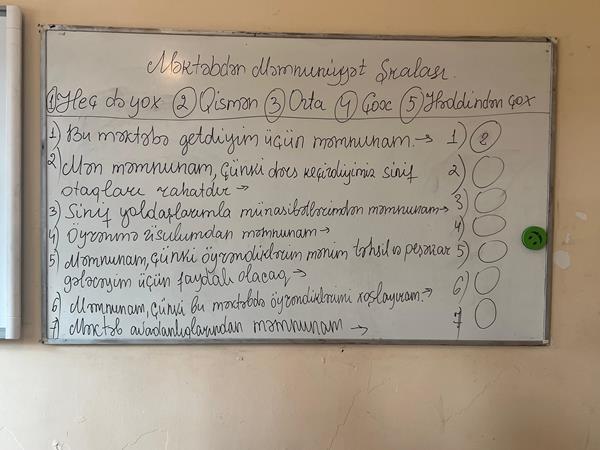 Məktəbdən Məmnuniyyət Şkalası.
① Heç də yox ② Qismən ③ Orta ④ Çox ⑤ Həddindən çox
1) Bu məktəbə getdiyim üçün məmnunam. → 1) 2
2) Mən məmnunam, çünki dərs keçirdiyimiz sinif 2)
otaqları rahatdır →
3) Sinif yoldaşlarımla münasibətlərimdən məmnunam → 3)
4) Öyrənmə üsulumdan məmnunam → 4)
5) Məmnunam, çünki öyrəndiklərim mənim təhsil və peşəkar 5)
gələcəyim üçün faydalı olacaq →
6) Məmnunam, çünki bu məktəbdə öyrəndiklərimi xoşlayıram. → 6)
7) Məktəb avadanlıqlarından məmnunam → 7